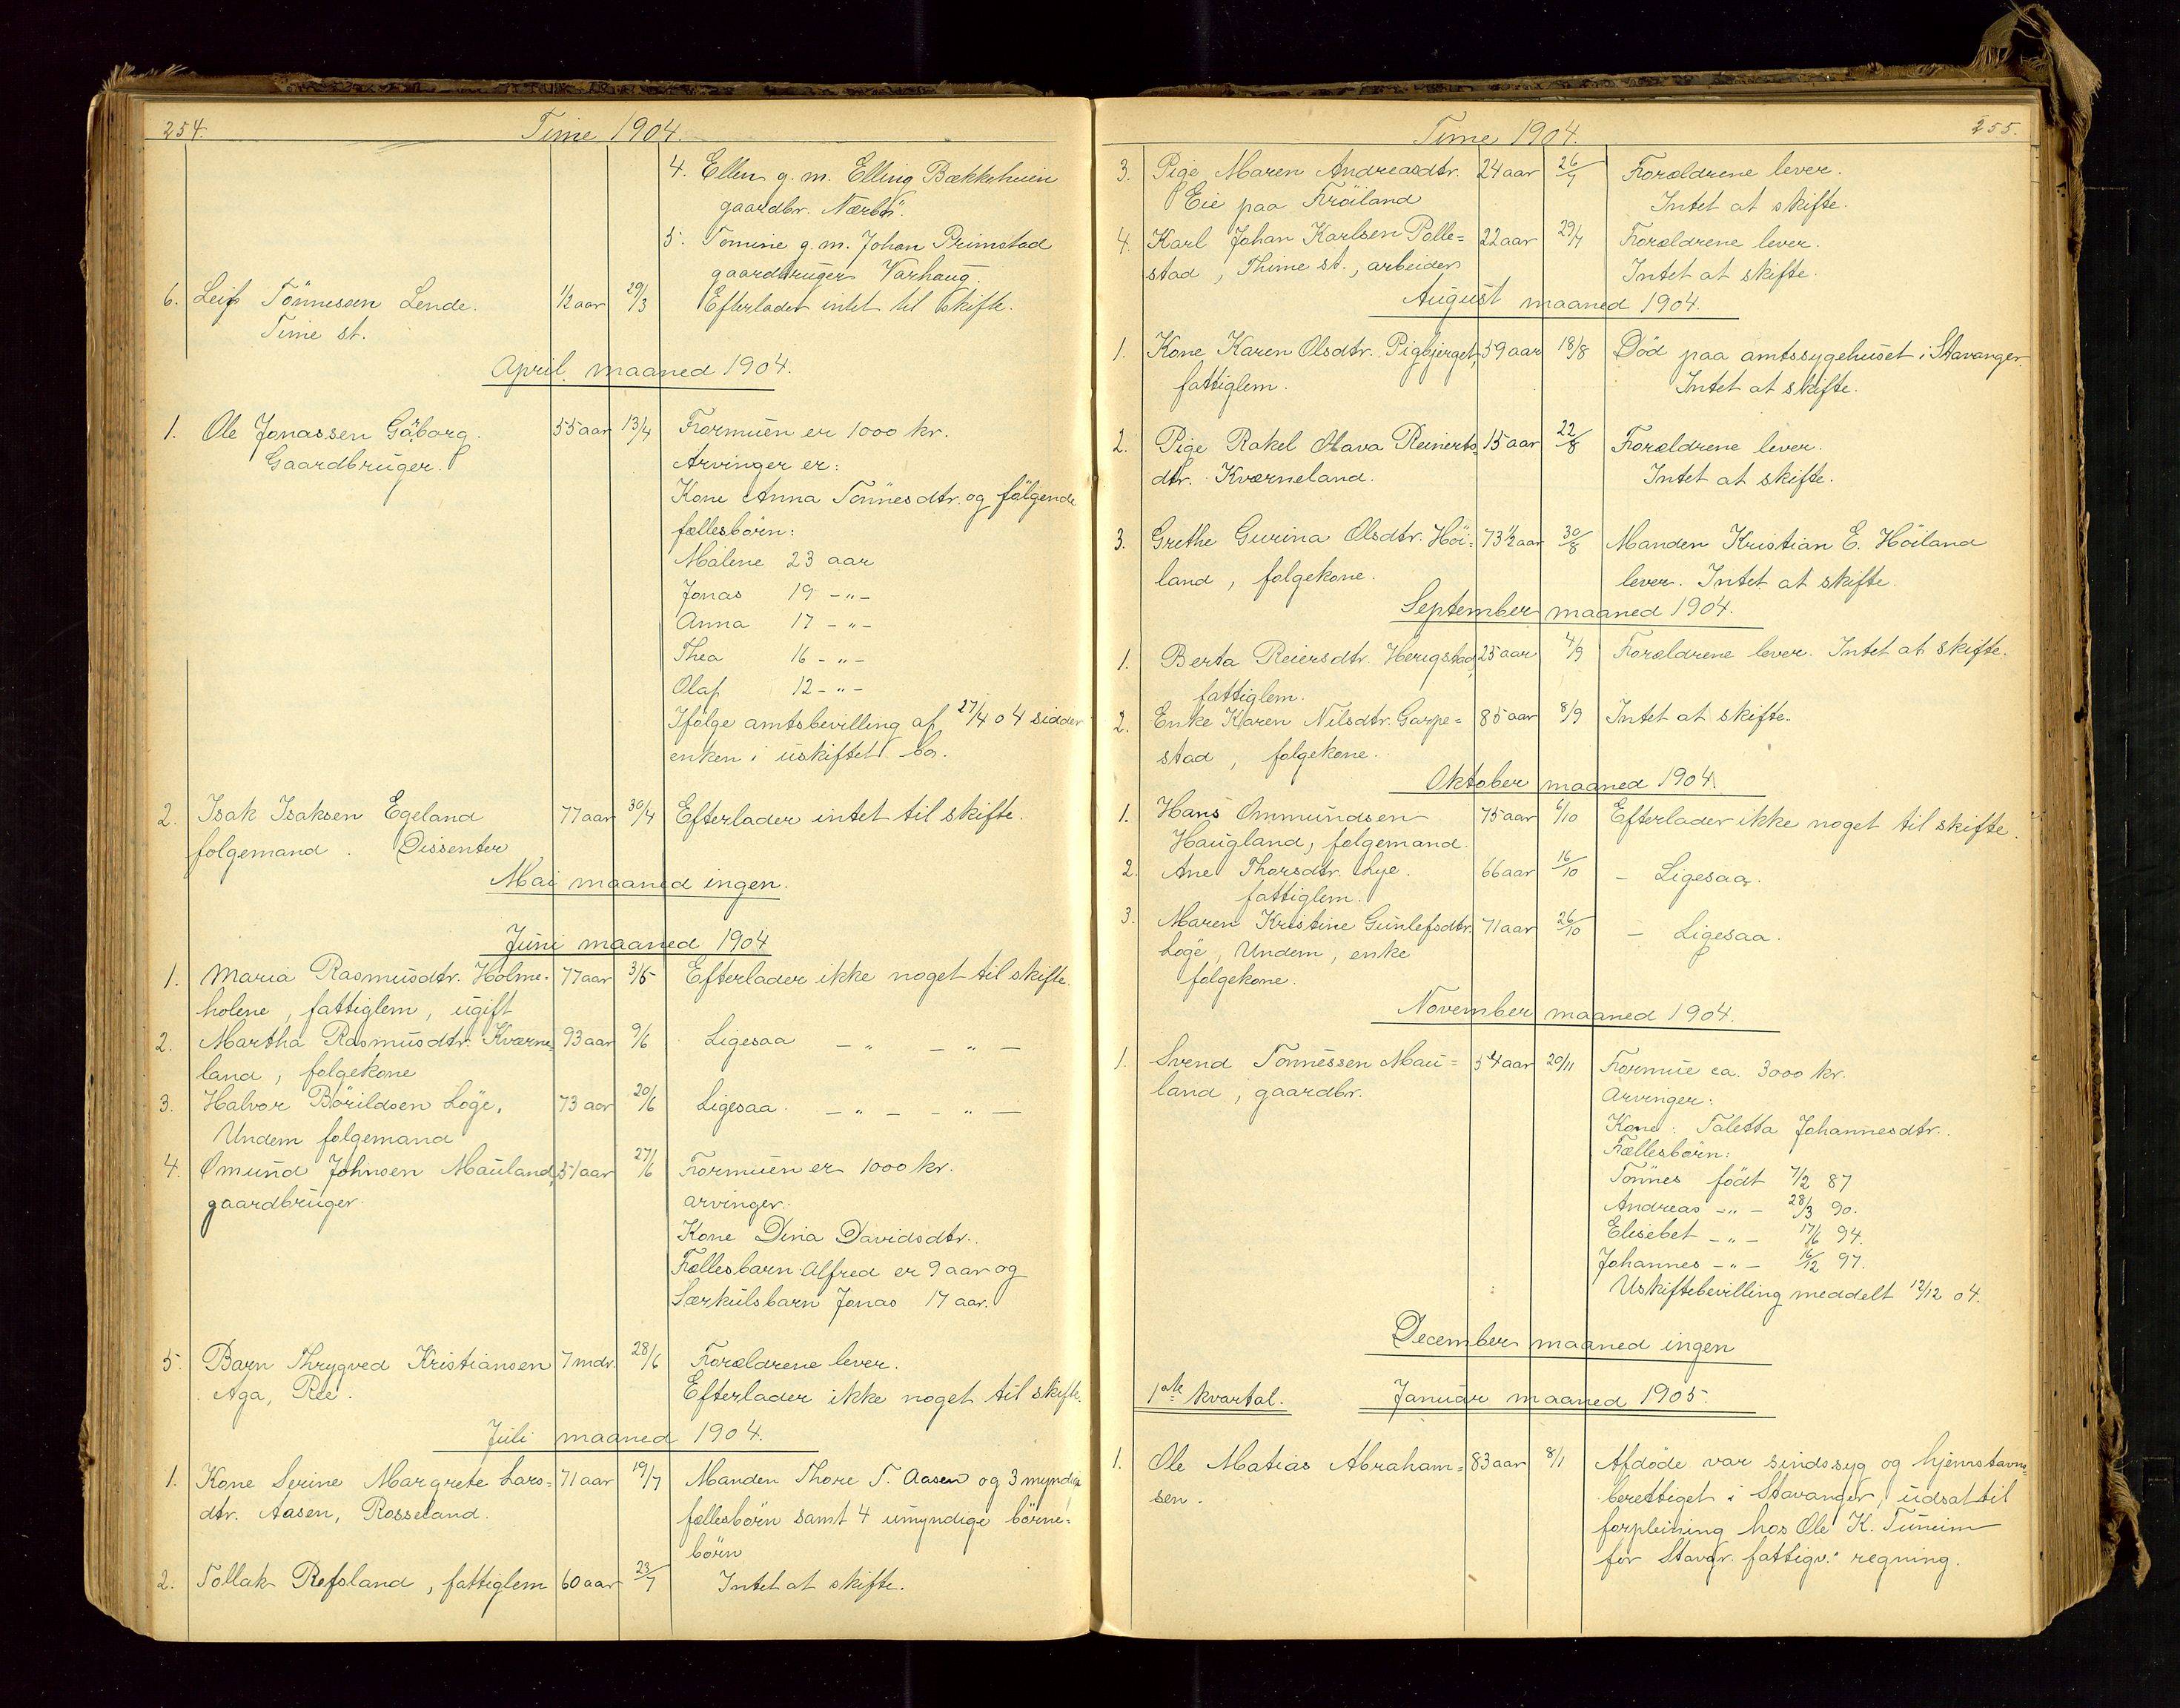 254.
Time 1904.
4. Ellen g. m. Elling Bækkehuien
gaardbr. Nærbö.
5. Tomine g. m. Johan Primstad
gaardbruger Varhaug.
6. Leif Tönnesen Lende. 1/2 aar 29/3 Efterlader intet til skifte.
Time st.
April maaned 1904.
1. Ole Jonassen Gåborg. 55 aar 13/4 Formuen er 1000 kr.
Gaardbruger. Arvinger er:
Kone Anna Tönnesdtr. og fölgende
fællesbörn:
Malene 23 aar
Jonas 19 -"-
Anna 17 -"-
Thea 16 -"-
Olaf 12 -"-
Ifölge amtsbevilling af 27/4 04 sidder
enken i uskiftet bo.
2. Isak Isaksen Egeland 77 aar 30/4 Efterlader intet til skifte.
folgemand. Dissenter
Mai maaned ingen.
Juni maaned 1904
1. Maria Rasmusdtr. Holme= 77 aar 3/5 Efterlader ikke noget til skifte.
holene, fattiglem, ugift
2. Martha Rasmusdtr. Kværne= 93 aar 9/6 Ligesaa -"- -"-
land, folgekone
3. Halvor Börildsen Löge, 73 aar 20/6 Ligesaa. -"- -"-
Undem folgemand
4. Omund Johnsen Mauland, 51 aar 27/6 Formuen er 1000 kr.
gaardbruger. arvinger:
Kone Dina Davidsdtr.
Fællesbarn Alfred er 9 aar og
Særkulsbarn Jonas 17 aar.
5. Barn Thrygved Kristiansen 7 mdr. 28/6 Forældrene lever.
Aga, Ree. Efterlader ikke noget til skifte.
Juli maaned 1904.
1. Kone Serine Margrete Lars= 71 aar 19/7 Manden Thore T. Aasen og 3 myndige
dtr. Aasen, Rosseland. fællesbörn samt 4 umyndige börne=
börn
2. Tollak Refsland, fattiglem 60 aar 23/7 Intet at skifte.
Time 1904.
255.
3. Pige Maren Andreasdtr. 24 aar 26/7 Forældrene lever.
Eie paa Fröiland Intet at skifte.
4. Karl Johan Karlsen Polle= 22 aar 29/7 Forældrene lever.
stad, Thime st., arbeider Intet at skifte.
August maaned 1904.
1. Kone Karen Olsdtr. Pigbjerget, 59 aar 18/8 Död paa amtssygehuset i Stavanger.
fattiglem. Intet at skifte.
2. Pige Rakel Olava Reinerts= 15 aar 22/8 Forældrene lever.
dtr. Kværneland. Intet at skifte.
3. Grethe Gurina Olsdtr. Höi= 73 1/2 aar 30/8 Manden Kristian E. Höiland
land, folgekone. lever. Intet at skifte.
September maaned 1904.
1. Berta Reiersdtr. Herigstad, 25 aar 4/9 Forældrene lever. Intet at skifte.
fattiglem.
2. Enke Karen Nilsdtr. Garpe= 85 aar 8/9 Intet at skifte.
stad, folgekone.
Oktober maaned 1904.
1. Hans Ommundsen 75 aar 6/10 Efterlader ikke noget til skifte.
Haugland, folgemand.
2. Ane Thorsdtr. Lye. 66 aar 16/10 - Ligesaa.
fattiglem.
3. Maren Kristine Gunlefsdtr. 71 aar 26/10 - Ligesaa.
Löge, Undem, enke
folgekone.
November maaned 1904.
1. Svend Tönnessen Mau= 54 aar 20/11 Formue ca. 3000 kr.
land, gaardbr. Arvinger:
Kone: Taletta Johannesdtr.
Fællesbörn:
Tönnes födt 7/2 87
Andreas -"- 28/3 90.
Elisebet -"- 17/6 94.
Johannes -"- 16/12 97.
Uskiftebevilling meddelt 12/12 04.
December maaned ingen
1ste kvartal. Januar maaned 1905.
1. Ole Matias Abraham= 83 aar 8/1 Afdöde var sindssyg og hjemstavns=
sen. berettiget i Stavanger, udsat til
forpleining hos Ole K. Tuneim
for Stavgr. fattigv. regning.